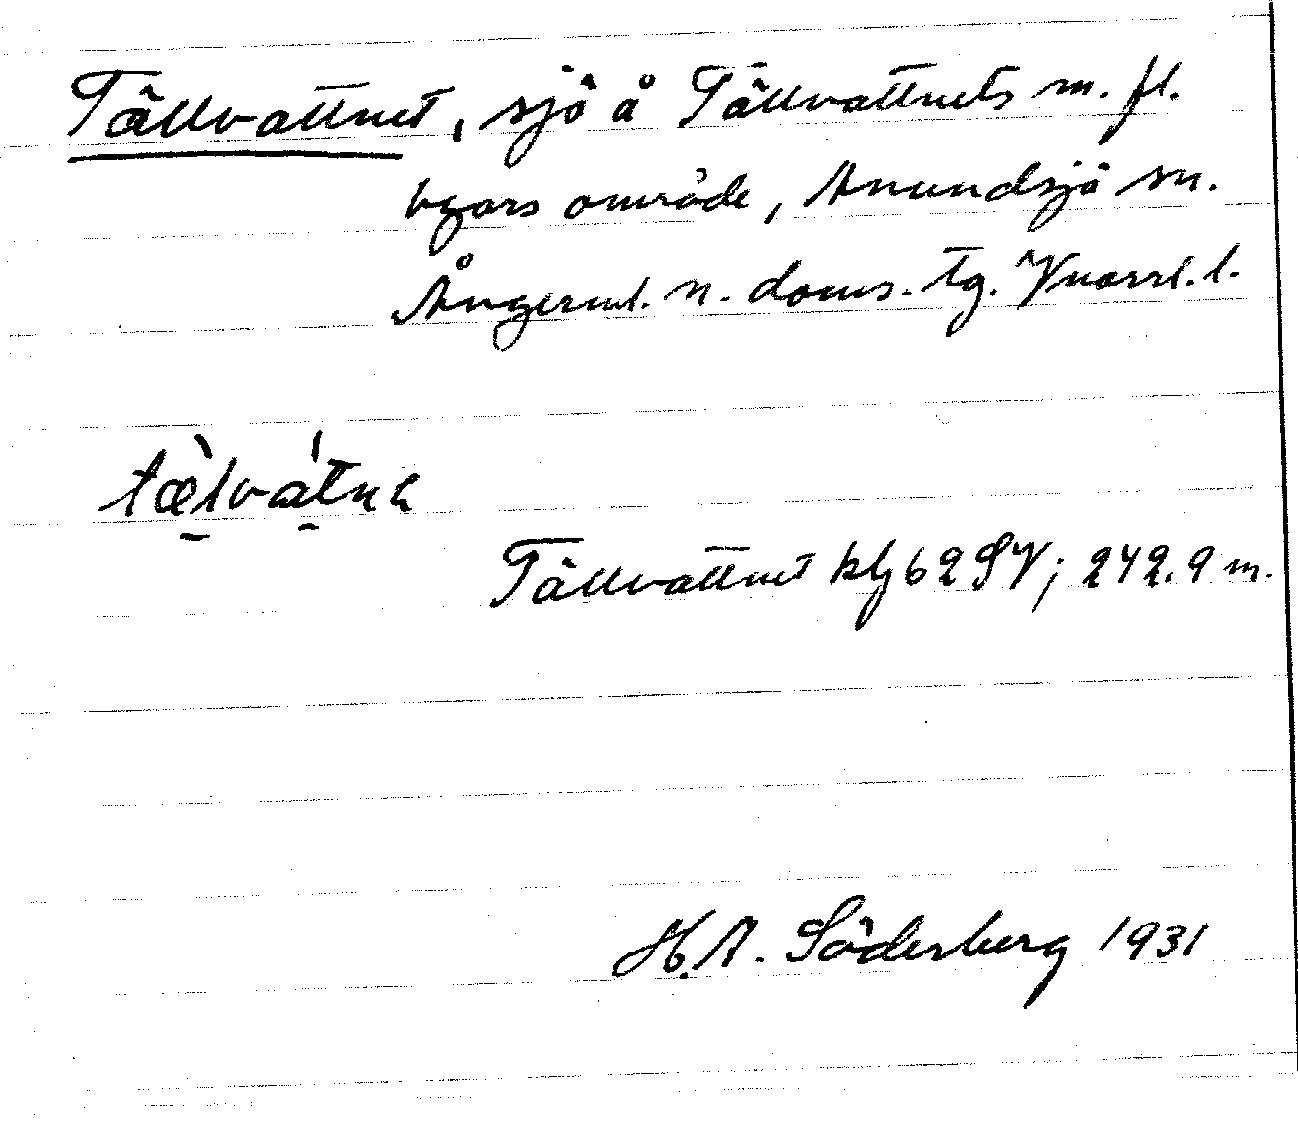 Tällvattnet, sjö å Tällvattnets m. fl.
byars område, Anundsjö sn.
Ångerml. n. doms. tg. Vnorrl. l.
tæ̀lvátnɐ
Tällvattnet kbl 62 SV; 242.9 m.
H.A. Söderberg 1931